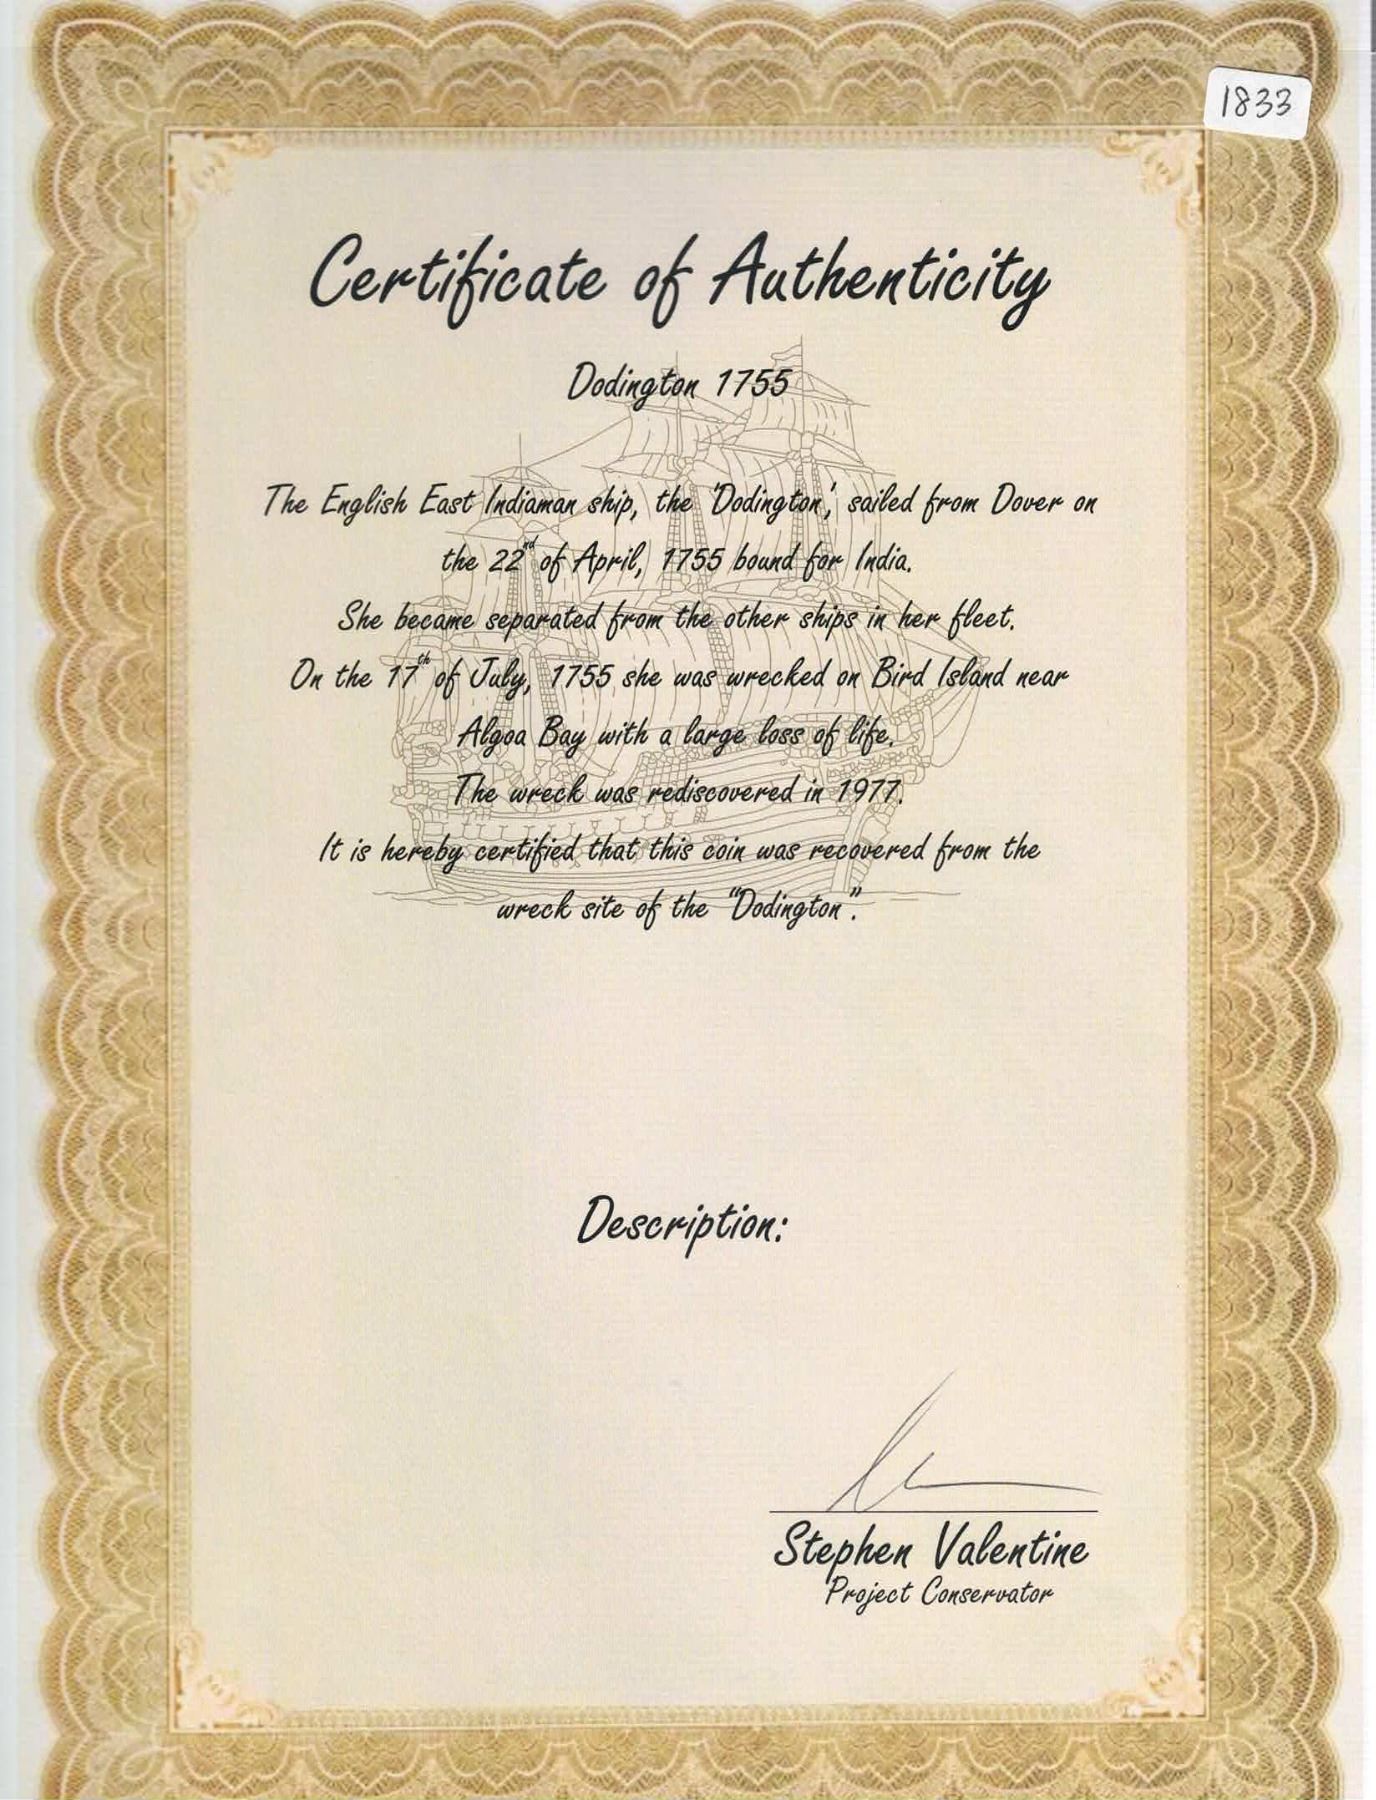 1833
Certificate of Authenticity
Dodington 1755
The English East Indiaman ship, the 'Dodington', sailed from Dover on
the 22nd of April, 1755 bound for India.
She became separated from the other ships in her fleet.
On the 17th of July, 1755 she was wrecked on Bird Island near
Algoa Bay with a large loss of life.
The wreck was rediscovered in 1977.
It is hereby certified that this coin was recovered from the
wreck site of the "Dodington".
Description:
Stephen Valentine
Project Conservator